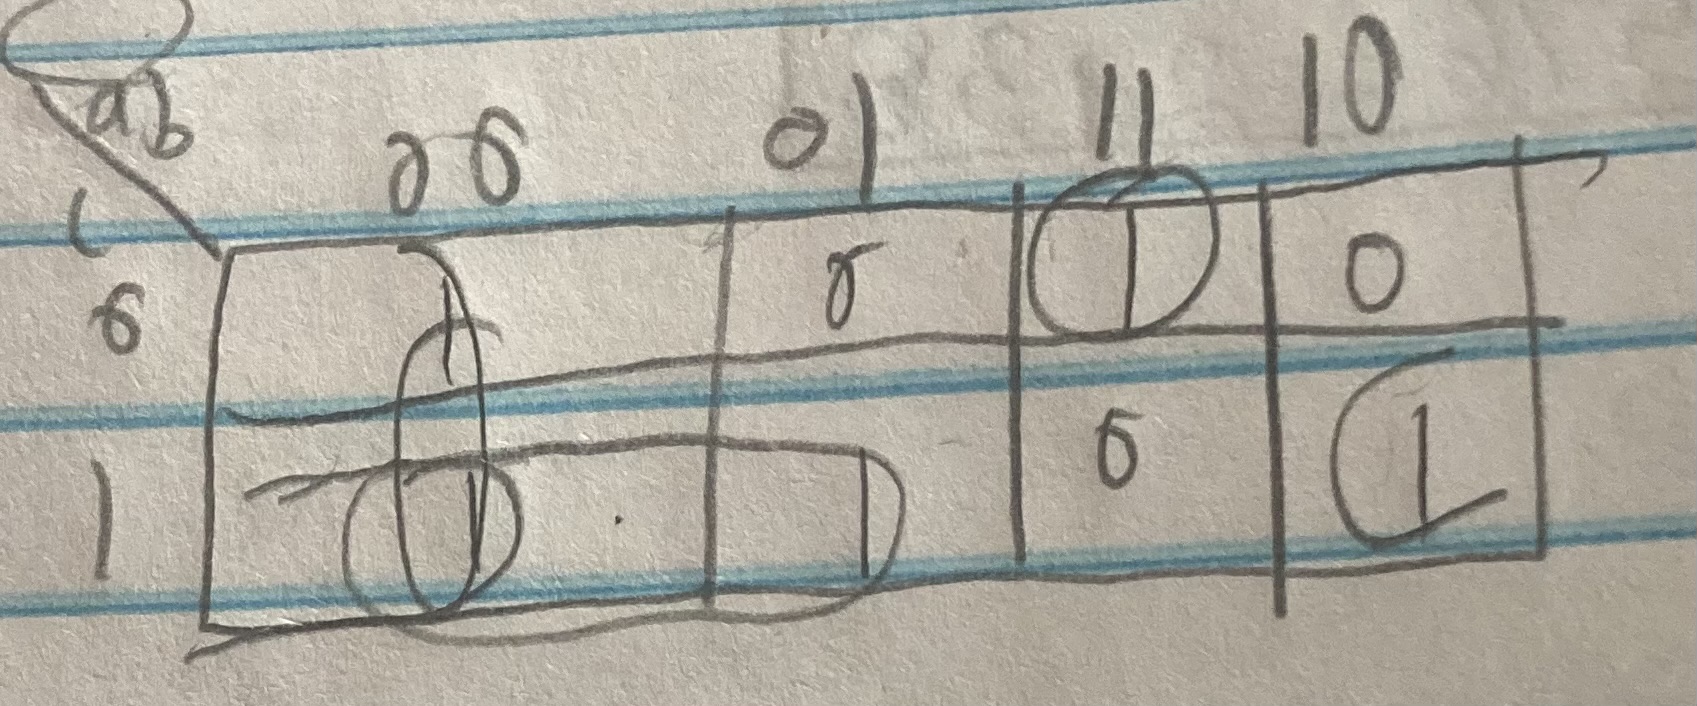 ab 00 01 11 10
c
0 1 0 1 0
1 1 1 0 1